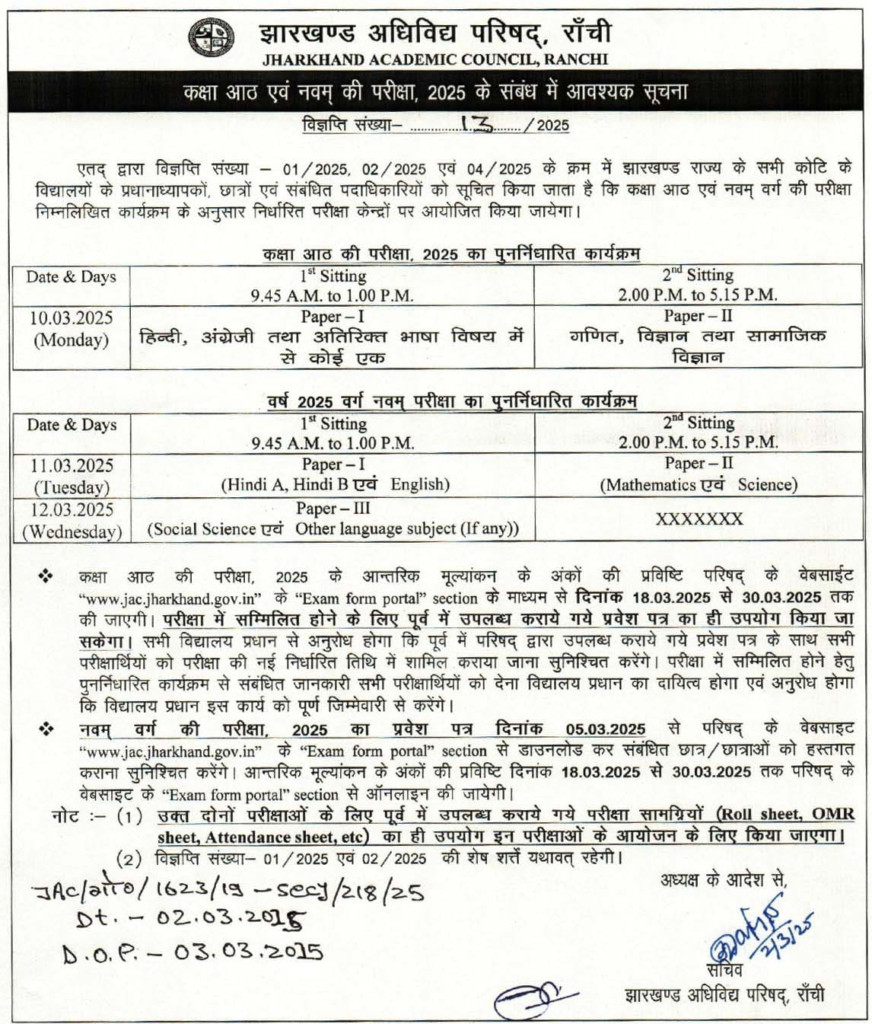 झारखण्ड अधिविद्य परिषद्, राँची
JHARKHAND ACADEMIC COUNCIL, RANCHI
कक्षा आठ एवं नवम् की परीक्षा, 2025 के संबंध में आवश्यक सूचना
विज्ञप्ति संख्या– ...............13......../2025
एतद् द्वारा विज्ञप्ति संख्या – 01/2025, 02/2025 एवं 04/2025 के क्रम में झारखण्ड राज्य के सभी कोटि के
विद्यालयों के प्रधानाध्यापकों, छात्रों एवं संबंधित पदाधिकारियों को सूचित किया जाता है कि कक्षा आठ एवं नवम् वर्ग की परीक्षा
निम्नलिखित कार्यक्रम के अनुसार निर्धारित परीक्षा केन्द्रों पर आयोजित किया जायेगा।
कक्षा आठ की परीक्षा, 2025 का पुनर्निधारित कार्यक्रम
Date & Days 1st Sitting 2nd Sitting
9.45 A.M. to 1.00 P.M. 2.00 P.M. to 5.15 P.M.
10.03.2025 Paper – I Paper – II
(Monday) हिन्दी, अंग्रेजी तथा अतिरिक्त भाषा विषय में गणित, विज्ञान तथा सामाजिक
से कोई एक विज्ञान
वर्ष 2025 वर्ग नवम् परीक्षा का पुनर्निधारित कार्यक्रम
Date & Days 1st Sitting 2nd Sitting
9.45 A.M. to 1.00 P.M. 2.00 P.M. to 5.15 P.M.
11.03.2025 Paper – I Paper – II
(Tuesday) (Hindi A, Hindi B एवं English) (Mathematics एवं Science)
12.03.2025 Paper – III XXXXXXX
(Wednesday) (Social Science एवं Other language subject (If any))
❖ कक्षा आठ की परीक्षा, 2025 के आन्तरिक मूल्यांकन के अंकों की प्रविष्टि परिषद् के वेबसाईट
"www.jac.jharkhand.gov.in" के "Exam form portal" section के माध्यम से दिनांक 18.03.2025 से 30.03.2025 तक
की जाएगी। परीक्षा में सम्मिलित होने के लिए पूर्व में उपलब्ध कराये गये प्रवेश पत्र का ही उपयोग किया जा
सकेगा। सभी विद्यालय प्रधान से अनुरोध होगा कि पूर्व में परिषद् द्वारा उपलब्ध कराये गये प्रवेश पत्र के साथ सभी
परीक्षार्थियों को परीक्षा की नई निर्धारित तिथि में शामिल कराया जाना सुनिश्चित करेंगे। परीक्षा में सम्मिलित होने हेतु
पुनर्निधारित कार्यक्रम से संबंधित जानकारी सभी परीक्षार्थियों को देना विद्यालय प्रधान का दायित्व होगा एवं अनुरोध होगा
कि विद्यालय प्रधान इस कार्य को पूर्ण जिम्मेवारी से करेंगे।
❖ नवम् वर्ग की परीक्षा, 2025 का प्रवेश पत्र दिनांक 05.03.2025 से परिषद् के वेबसाइट
"www.jac.jharkhand.gov.in" के "Exam form portal" section से डाउनलोड कर संबंधित छात्र/छात्राओं को हस्तगत
कराना सुनिश्चित करेंगे। आन्तरिक मूल्यांकन के अंकों की प्रविष्टि दिनांक 18.03.2025 से 30.03.2025 तक परिषद् के
वेबसाइट के "Exam form portal" section से ऑनलाइन की जायेगी।
नोट :– (1) उक्त दोनों परीक्षाओं के लिए पूर्व में उपलब्ध कराये गये परीक्षा सामग्रियों (Roll sheet, OMR
sheet, Attendance sheet, etc) का ही उपयोग इन परीक्षाओं के आयोजन के लिए किया जाएगा।
(2) विज्ञप्ति संख्या– 01/2025 एवं 02/2025 की शेष शर्त्तें यथावत् रहेगी।
अध्यक्ष के आदेश से,
JAC/गो०/1623/19 – Secy/218/25
Dt. – 02.03.2015
D.O.P. – 03.03.2015
2/3/25
सचिव
झारखण्ड अधिविद्य परिषद्, राँची